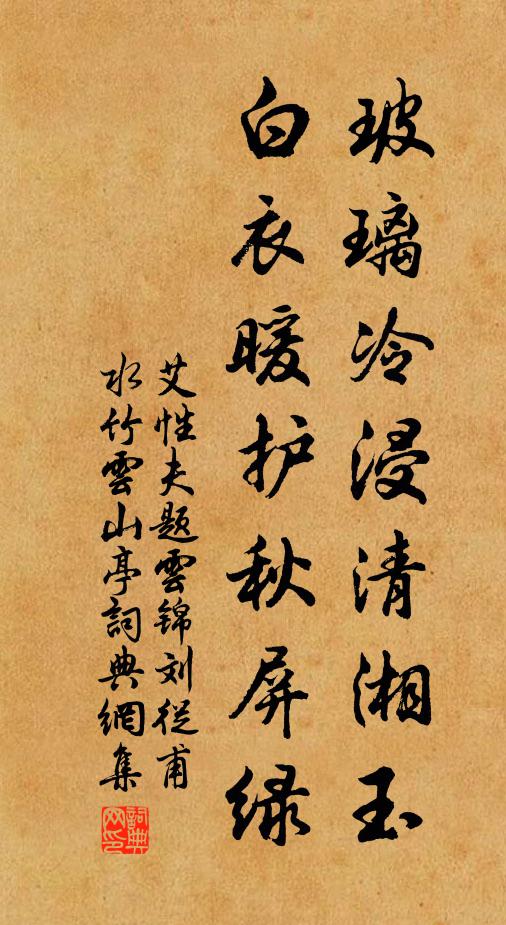 玻璃冷浸清湘玉
白衣暖护秋屏绿
艾性夫题雲锦刘從甫
水竹雲山亭詞典網集
詞典网印